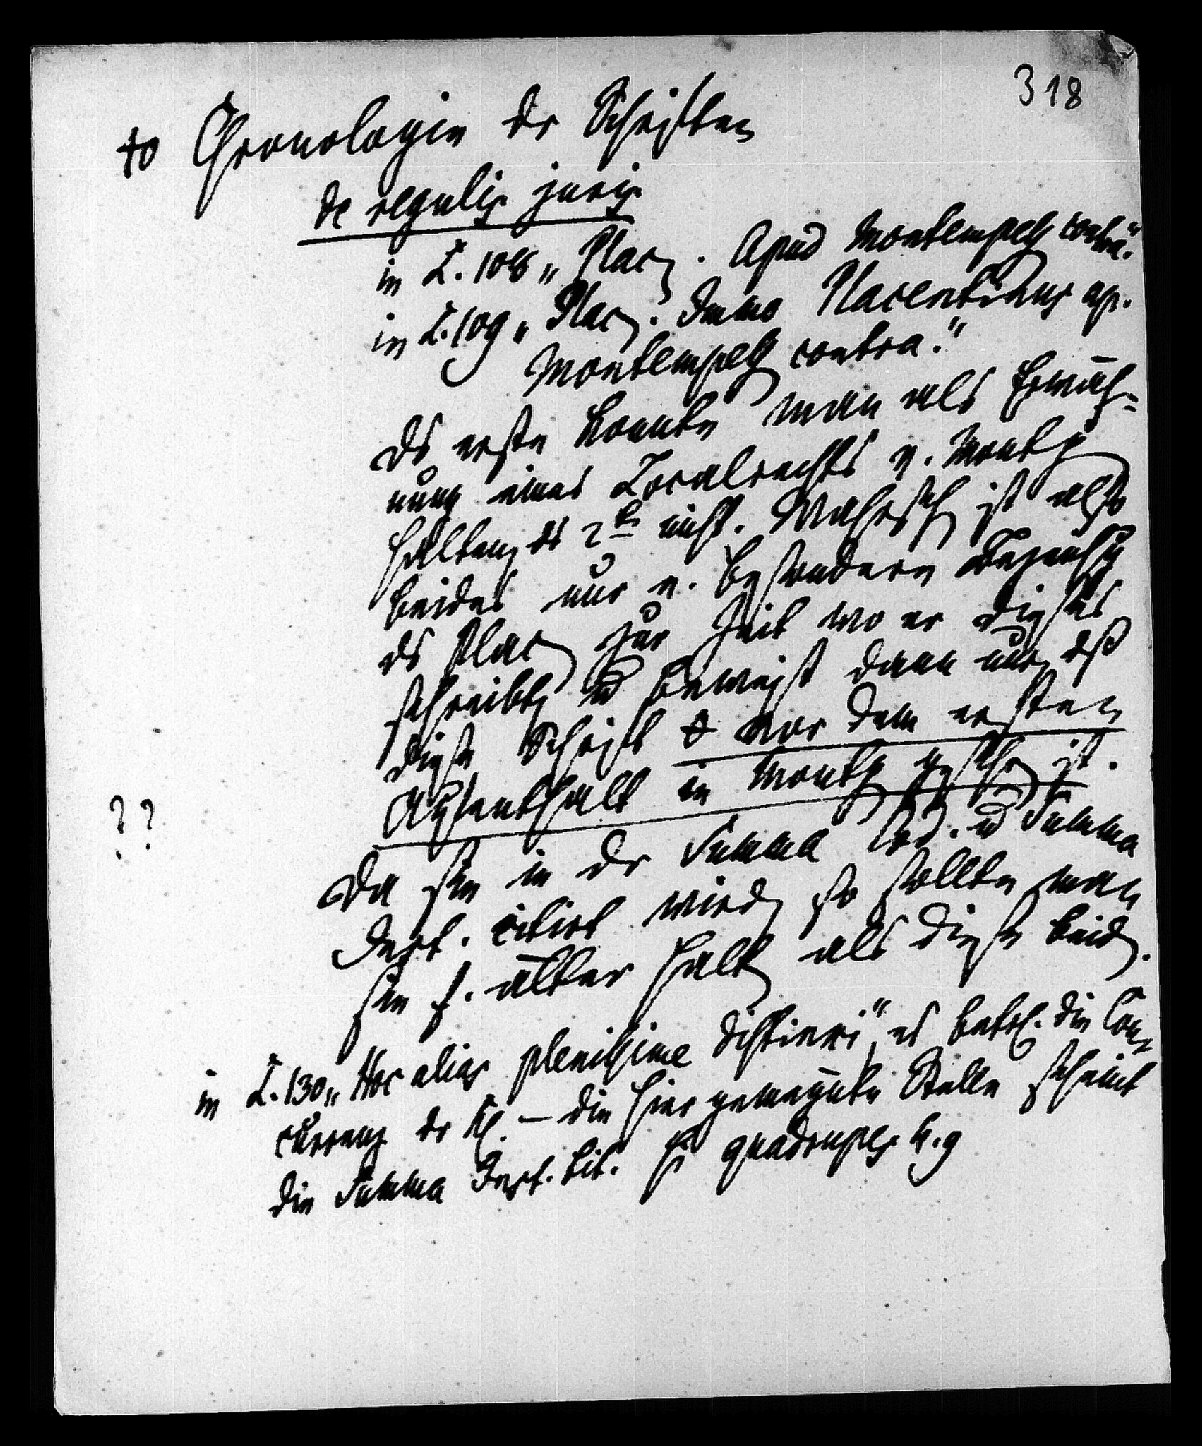 318
to Chronologie dr Schriften
de regulis juris
in L. 108 „Plac. Apud Montempess contra."
in L. 109 „Plac. Immo Placentinus ap.
Montempess contra."
Ds erste konnte man als Erwäh-
nung eines Localrechts v. Montp
halten, ds 2te nicht. Wahrsch ist also
beides nur v. besonderen
ds Plac zur Zeit wo er dieses
schreibt, u beweist dann nur dß
diese Schrift vor dem ersten
Aufenthalt in Montp gesch ist.
??
Da sie in dr Summa Cod. u Summa
Inst. citirt wird, so sollte man
sie f. älter halt als diese beid.
in L. 130 „Hoc alias plenissime distinxi", es betr. die Con-
currenz dr Kl. – die hier gemeynte Stelle scheint
die Summa Inst. tit. quadrupl.